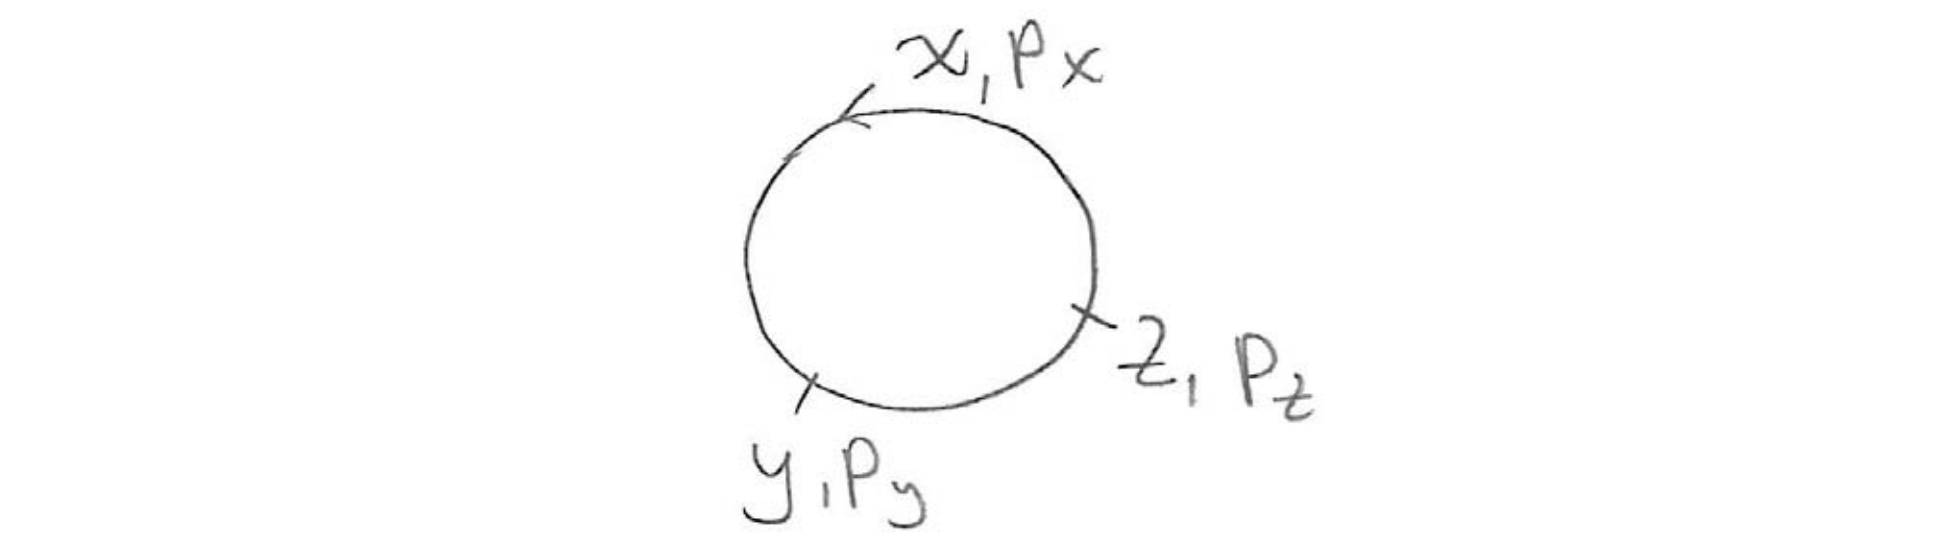 x, px
z, pz
y, py